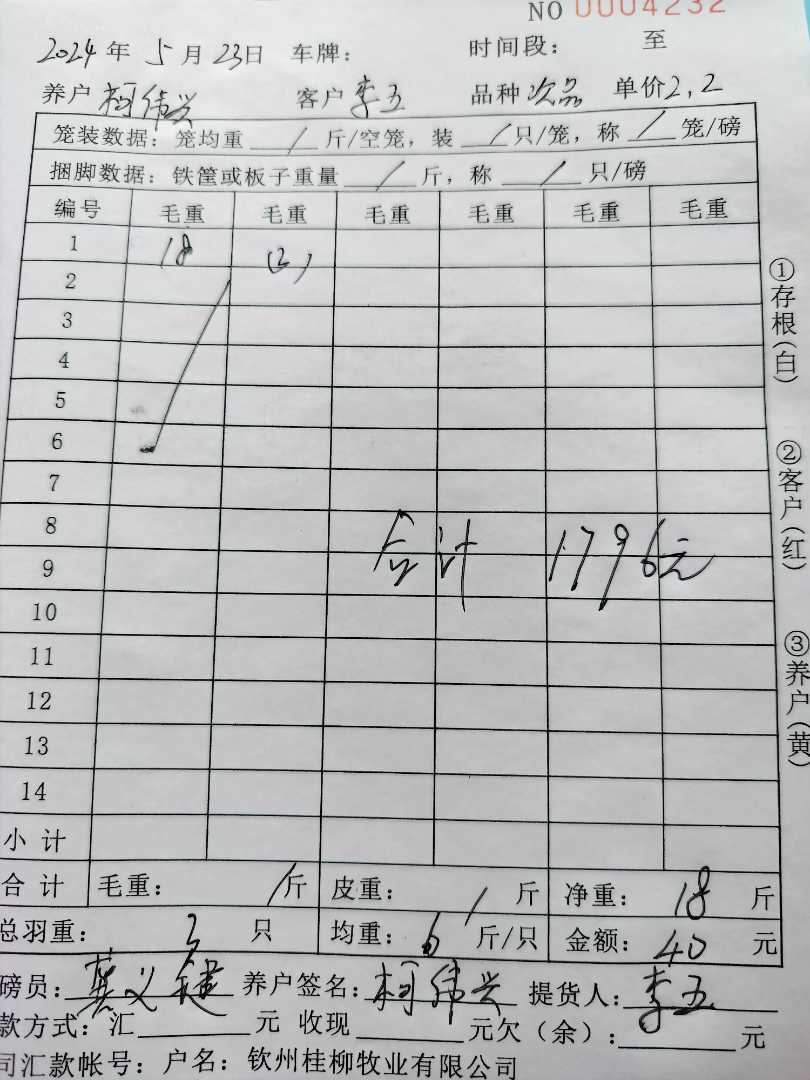 NO 0004232
2024年 5月 23日 车牌: 时间段: 至
养户 柯伟兴 客户 李五 品种 次品 单价 2.2
笼装数据: 笼均重 / 斤/空笼, 装 / 只/笼, 称 / 笼/磅
捆脚数据: 铁筐或板子重量 / 斤, 称 / 只/磅
编号 毛重 毛重 毛重 毛重 毛重 毛重
1 18
2
3
4
5
6
7
8 合计 1796元
9
10
11
12
13
14
小计
合计 毛重: / 斤 皮重: / 斤 净重: 18 斤
总羽重: 3 只 均重: 6 斤/只 金额: 40 元
磅员: 龚义 养户签名: 柯伟兴 提货人: 李五
款方式: 汇 元 收现 元欠(余): 元
司汇款帐号: 户名: 钦州桂柳牧业有限公司
①存根(白)
②客户(红)
③养户(黄)